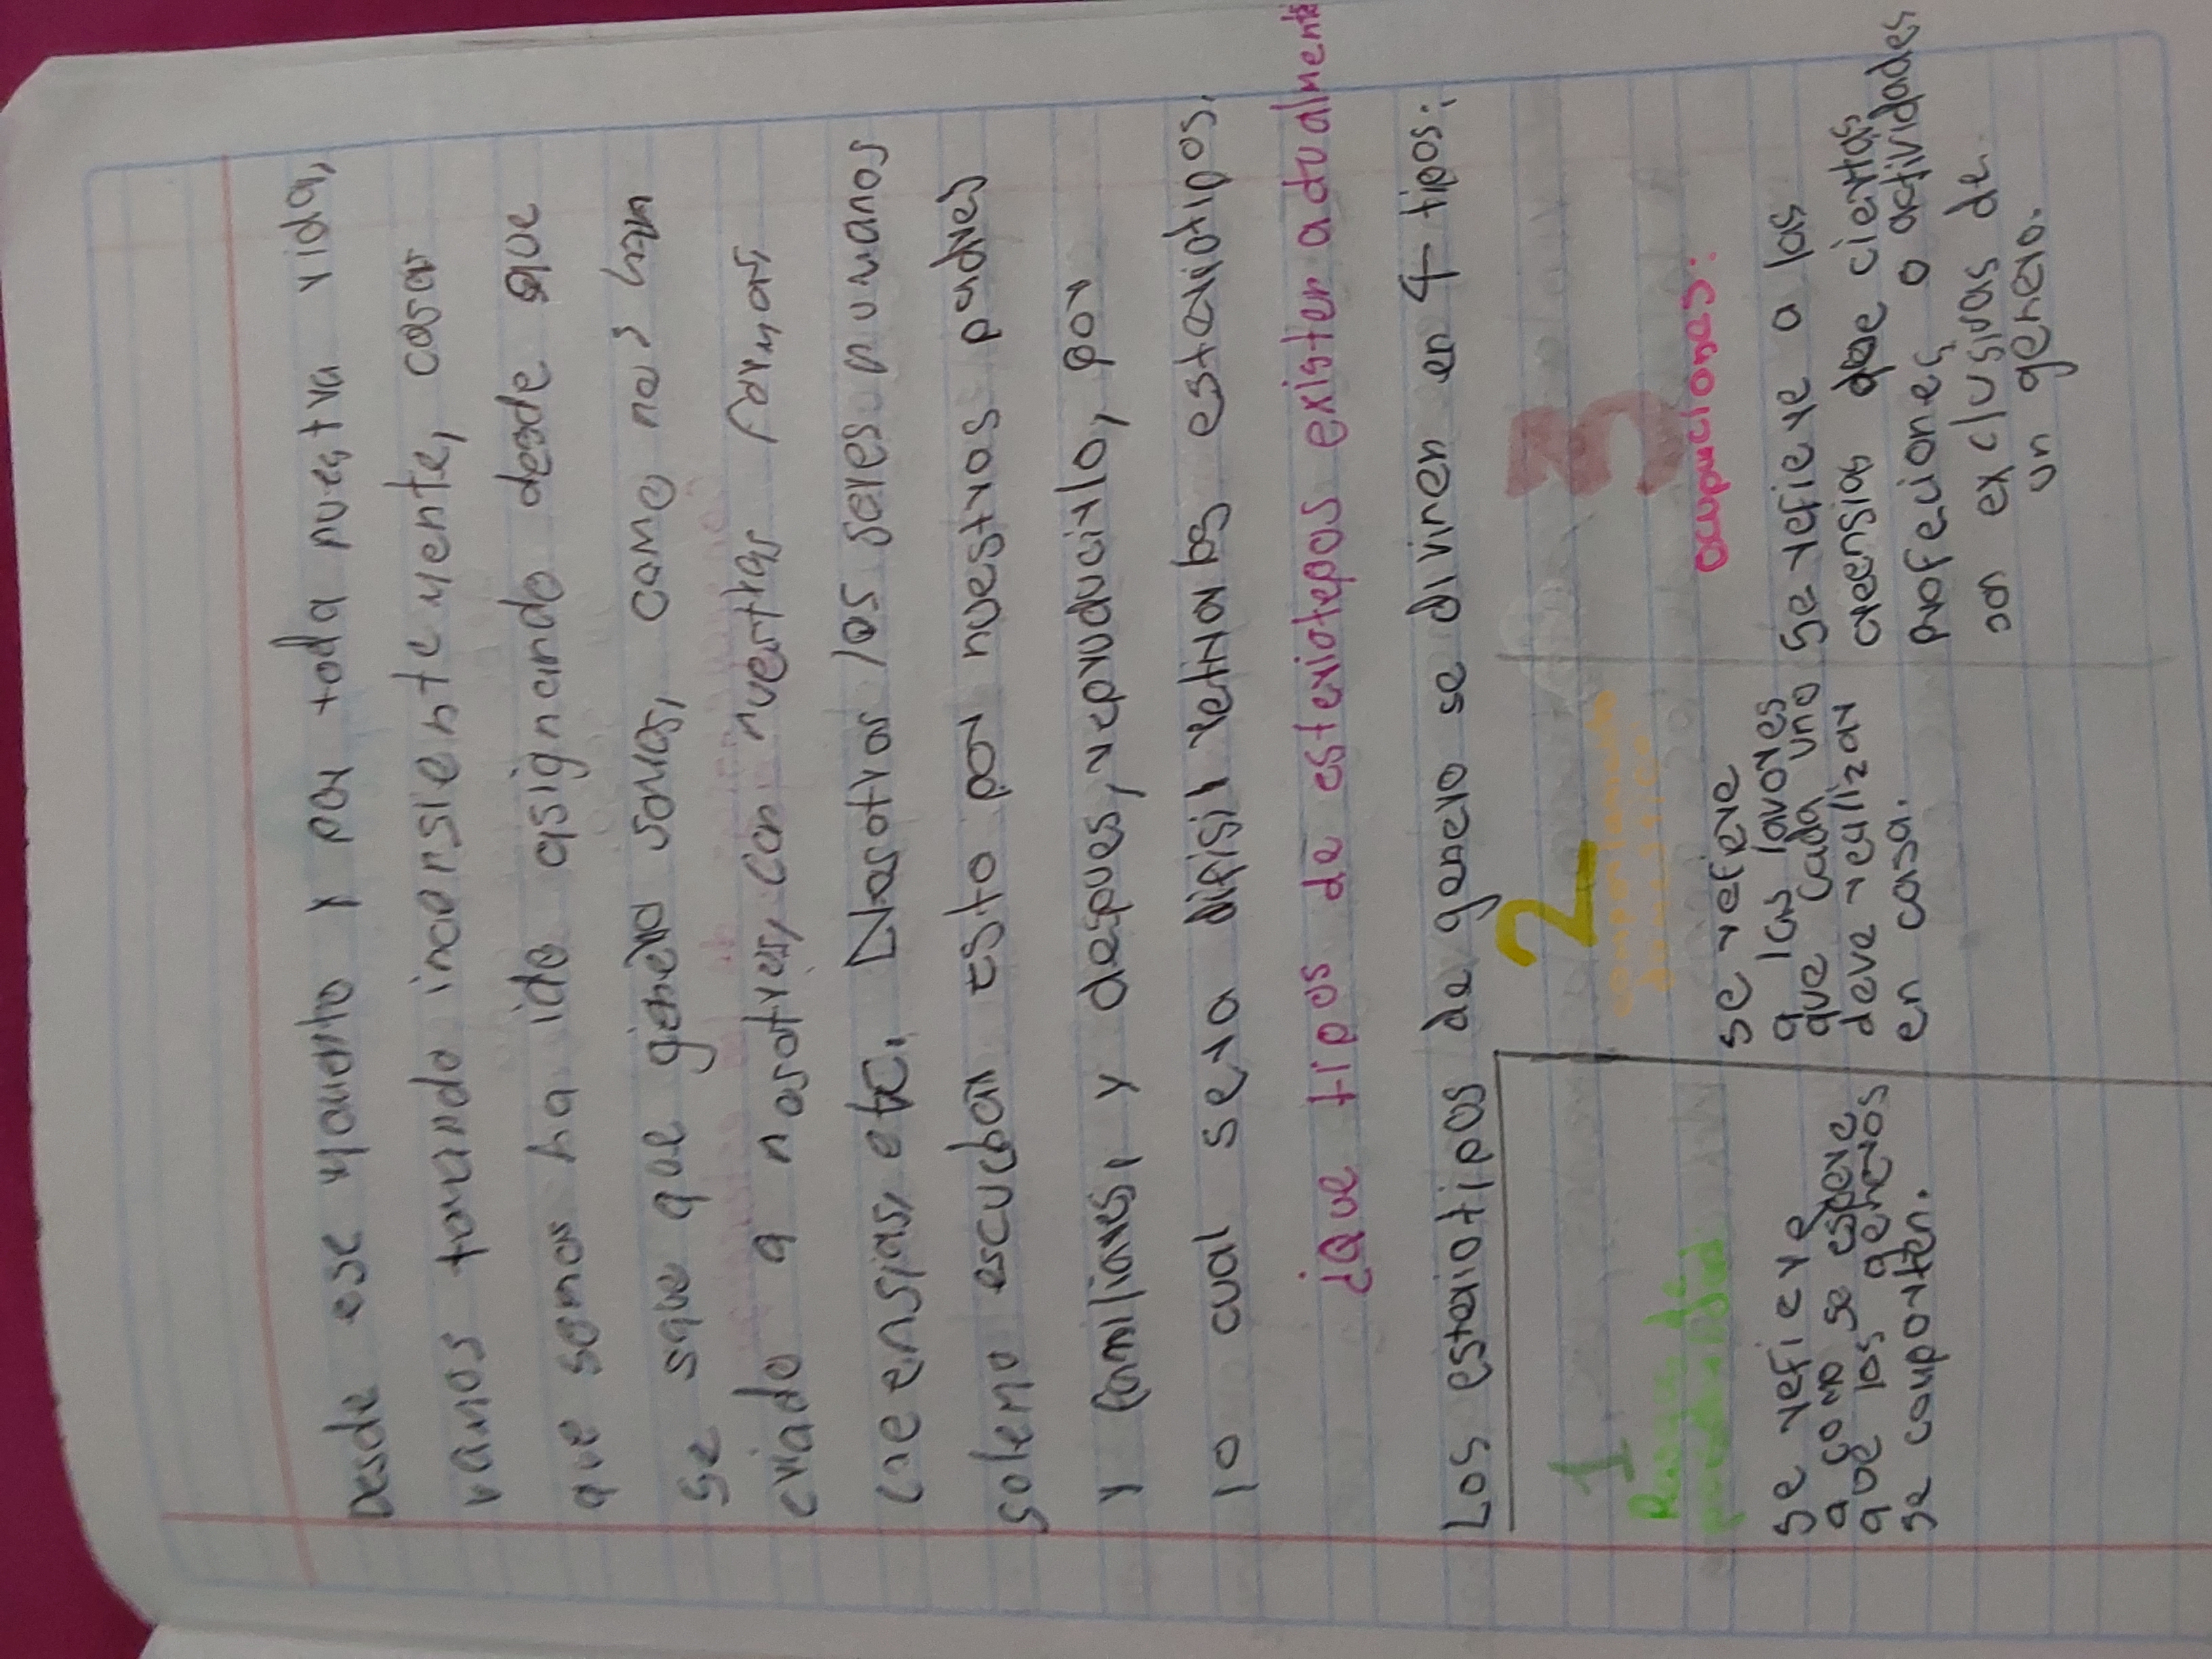 Desde ese momento y por toda nuestra vida,
vamos tomando inconsientemente, cosas
que somos ha ido asignando desde que
se save que género somos, como nos han
criado a nosotros, con nuestras formas
creensias, etc. Nosotros los seres humanos
solemo escuchar esto por nuestros padres
y familiares, y despues, reproducirlo, por
lo cual sera dificil retirar los esteriotipos.
¿Que tipos de esteriotepos existen actualmente
Los esteriotipos de genero se diviren en 4 tipos:
1
2
3
Rasgos de
personalidad
comportamiento
domestico
ocupaciones:
se refiere
a como se espere
que los generos
se comporten.
se refiere
a las lavores
que cada uno
deve realizar
en casa.
se refiere a las
creensias que ciertas
profeciones o actividades
son exclusivas de
un genero.